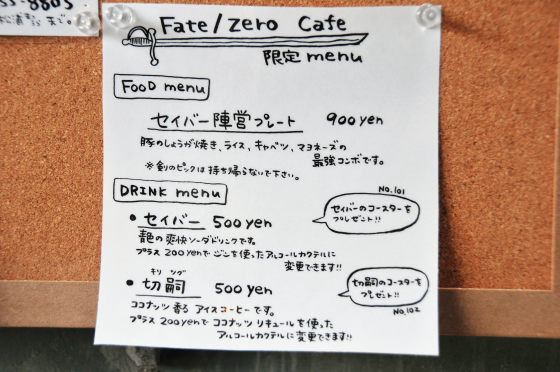 53-8805
Fate/Zero Cafe
限定menu
FOOD menu
セイバー陣営プレート 900yen
豚のしょうが焼き、ライス、キャベツ、マヨネーズの
最強コンボです。
※剣のピックは持ち帰らないで下さい。
DRINK menu
No.101
セイバーのコースターを
プレゼント!!
• セイバー 500yen
青色の爽快ソーダドリンクです。
プラス200yenでジンを使ったアルコールカクテルに
変更できます!!
キリ ツグ
• 切嗣 500yen
切嗣のコースターを
プレゼント!!
No.102
ココナッツ香るアイスコーヒーです。
プラス200yenでココナッツリキュールを使った
アルコールカクテルに変更できます!!